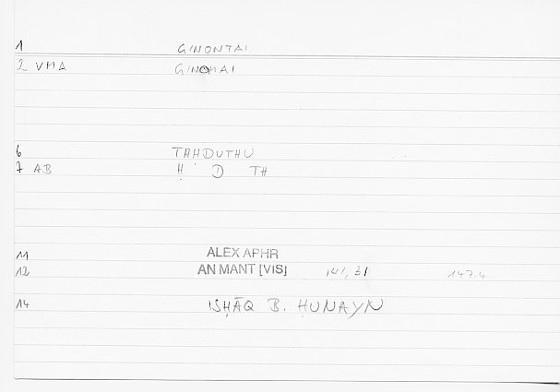 1 GINONTAI
2 VMA GINOMAI
6 TAḤDUTHU
7 AB Ḥ D TH
11 ALEX APHR
12 AN MANT [VIS] 141, 31 147.4
14 ISḤĀQ B. ḤUNAYN